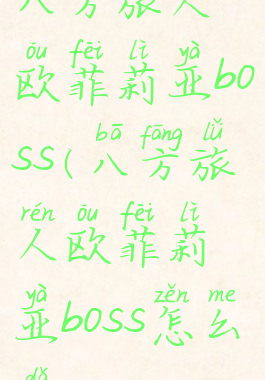 八方旅人
ōu fēi lì yà
欧菲莉亚bo
bā fāng lǚ
ss(八方旅
rén ōu fēi lì
人欧菲莉
yà zěn me
亚boss怎么
dǎ